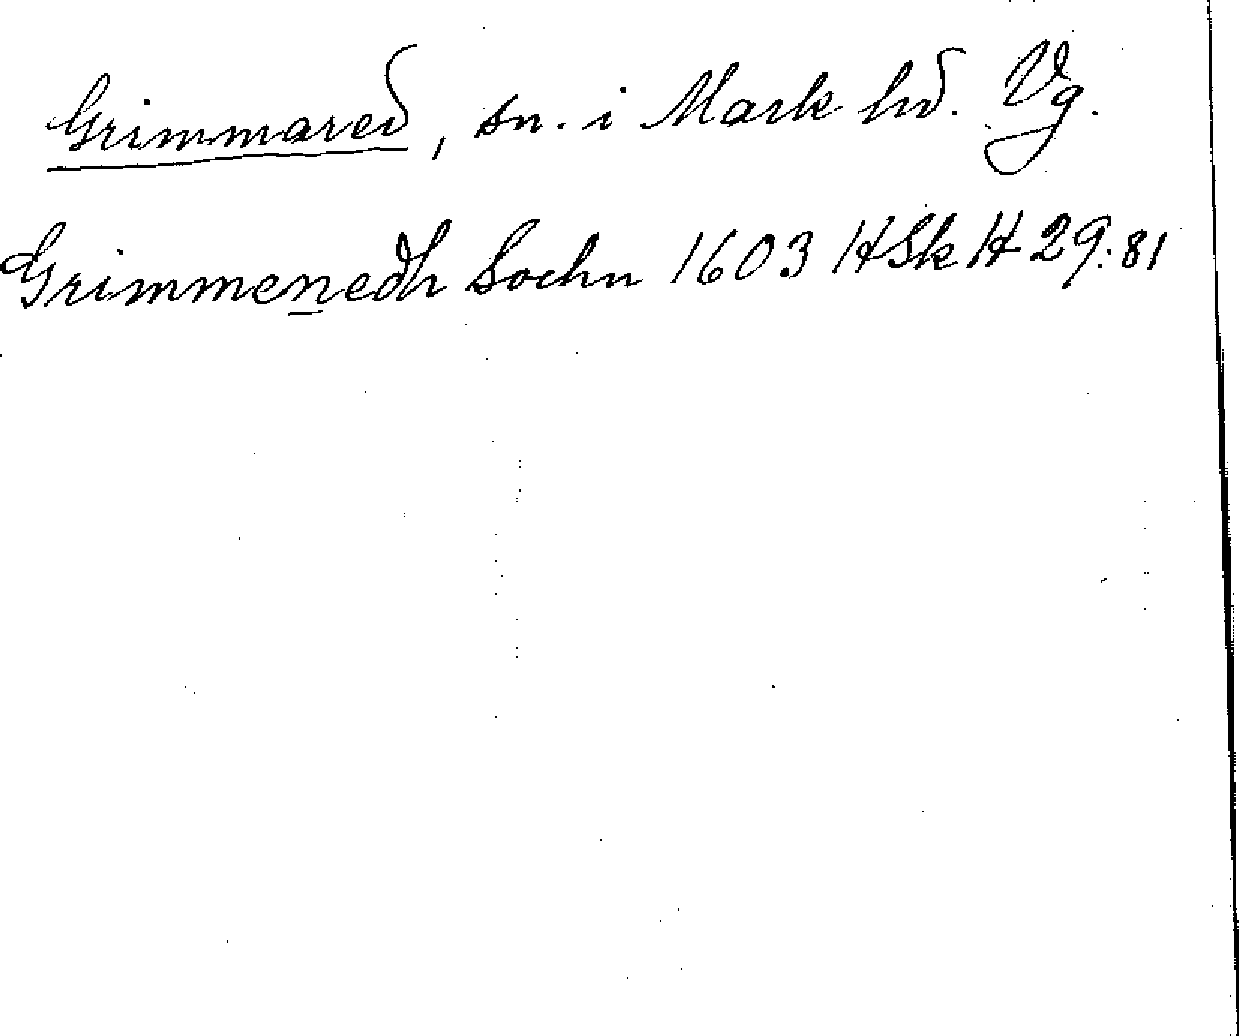 Grimmared, sn. i Mark hd. Vg.
Grimmenedh Sochn 1603 HSkH 29:81